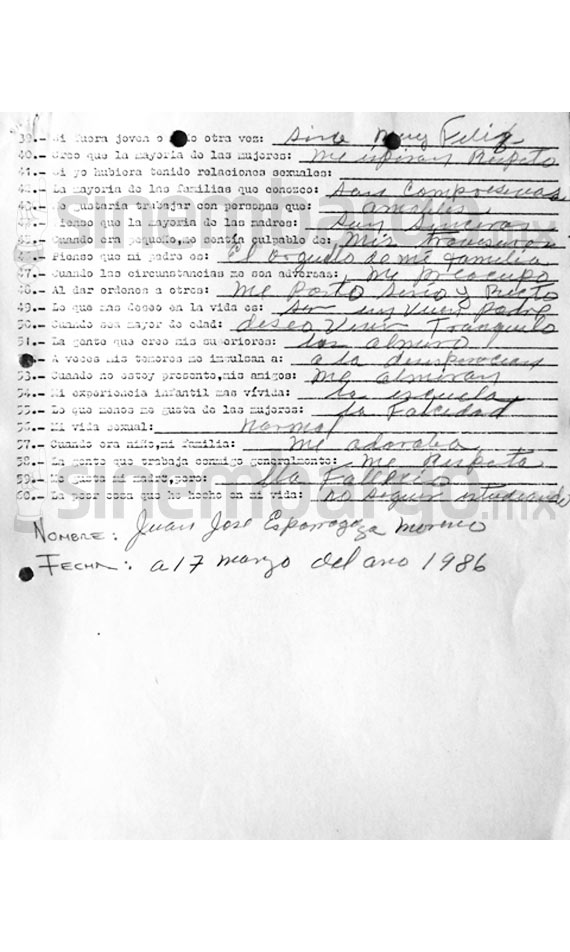 sinembargo.mx
39.- Si fuera joven o otra vez: sire muy Feliz
40.- Creo que la mayoría de las mujeres: me inspiran Respeto
41.- Si yo hubiera tenido relaciones sexuales:
42.- La mayoría de las familias que conozco: son Compresivas
43.- Me gustaria trabajar con personas que:
44.- Pienso que la mayoría de las madres: son sinceras
45.- Cuando era pequeño,me sentía culpable de: Mis travesuras
46.- Pienso que mi padre es: El orgullo de mi familia
47.- Cuando las circunstancias me son adversas: me preocupo
48.- Al dar ordenes a otros: me Porto Serio y Recto
49.- Lo que mas deseo en la vida es: Ser un Vuen Padre
50.- Cuando sea mayor de edad: deseo Vivir Tranquilo
51.- La gente que creo mis superiores: los almiro
A veces mis temores me impulsan a: a la desesperacion
53.- Cuando no estoy presente,mis amigos: me almiran
54.- Mi experiencia infantil mas vívida: la escuela
55.- Lo que menos me gusta de las mujeres: la Falcedad
56.- Mi vida sexual: normal
57.- Cuando era niño,mi familia: me adoraba
58.- La gente que trabaja conmigo generalmente: me Respeta
59.- Me gusta mi madre,pero: lla Fallecio
60.- La peor cosa que he hecho en mi vida: no seguir estudiando
sinembargo.mx
NOMBRE: Juan Jose Esparragoza Moreno
FECHA: a 17 marzo del ano 1986